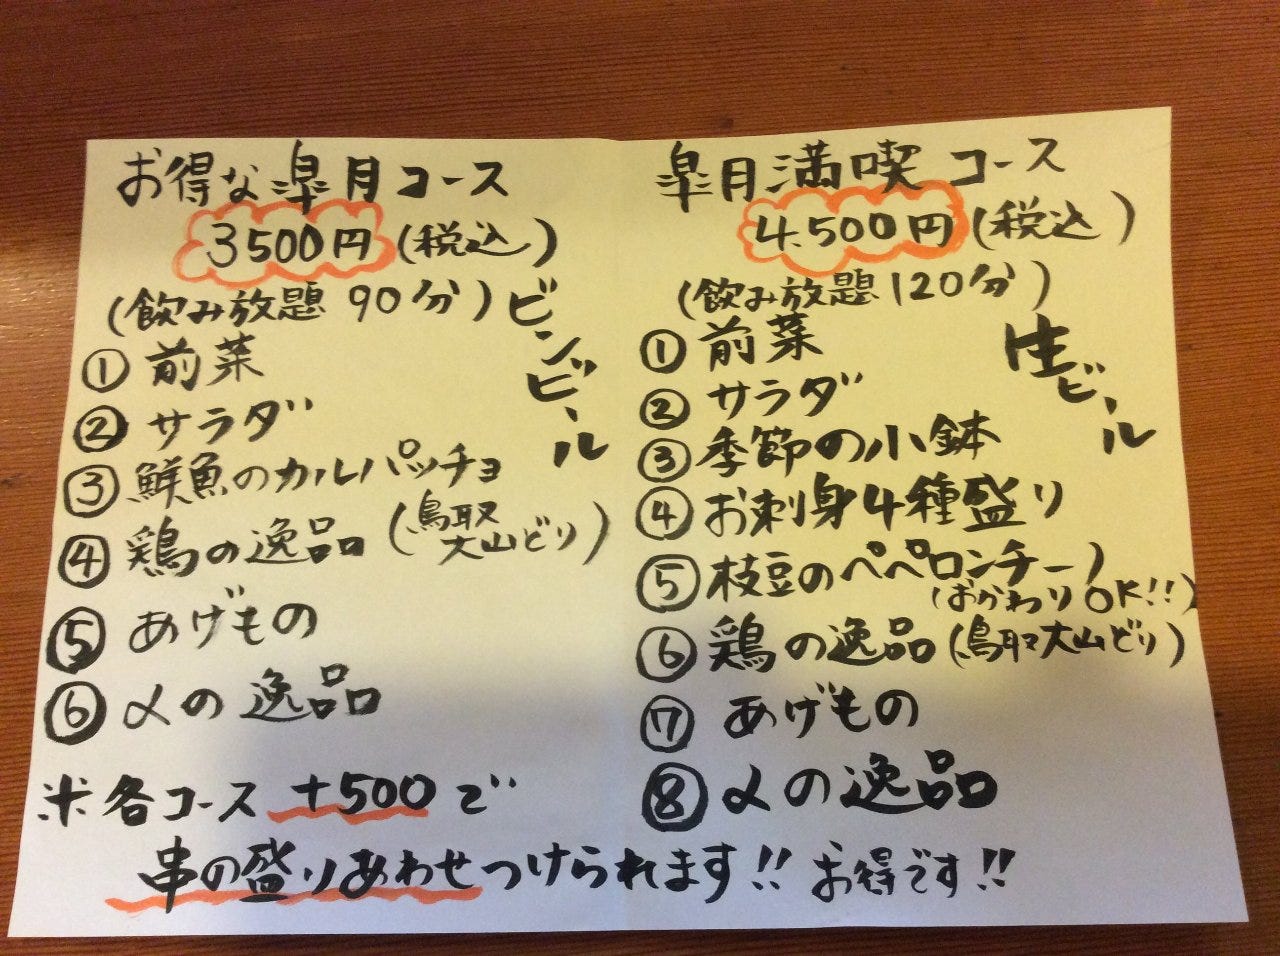 お得な皐月コース
3500円(税込)
(飲み放題 90分)
ビンビール
① 前菜
② サラダ
③ 鮮魚のカルパッチョ
④ 鶏の逸品(鳥取大山どり)
⑤ あげもの
⑥ 〆の逸品
皐月満喫コース
4.500円(税込)
(飲み放題120分)
生ビール
① 前菜
② サラダ
③ 季節の小鉢
④ お刺身4種盛り
⑤ 枝豆のペペロンチーノ
(おかわりOK!!)
⑥ 鶏の逸品(鳥取大山どり)
⑦ あげもの
⑧ 〆の逸品
※各コース +500で
串の盛りあわせつけられます!! お得です!!